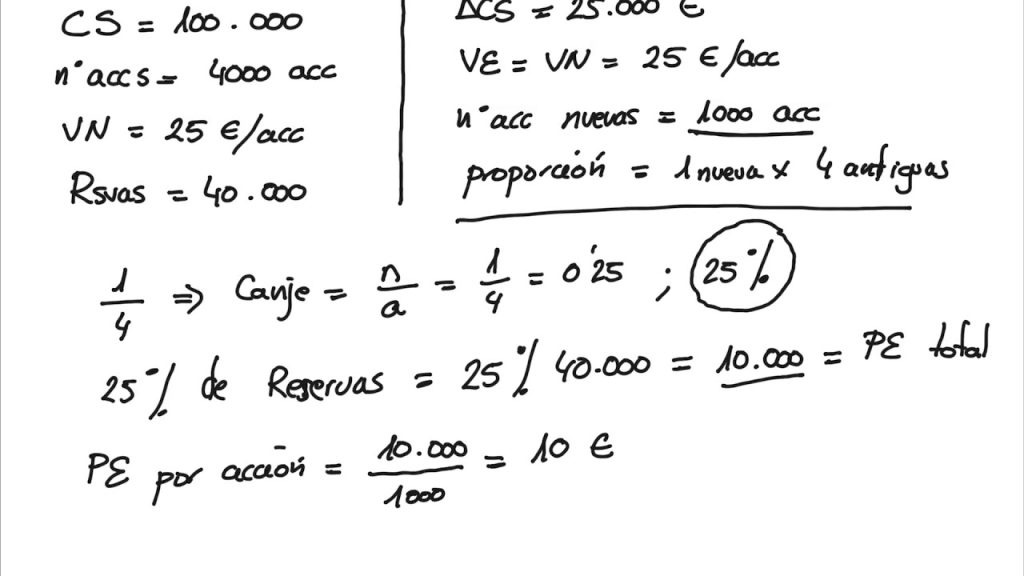 CS = 100.000
nº accs = 4000 acc
VN = 25 €/acc
Rsvas = 40.000
ΔCS = 25.000 €
VE = VN = 25 €/acc
nº acc nuevas = 1000 acc
proporción = 1 nueva x 4 antiguas
1/4 ⇒ Canje = n/a = 1/4 = 0'25 ; 25%
25% de Reservas = 25% 40.000 = 10.000 = PE total
PE por acción = 10.000/1000 = 10 €